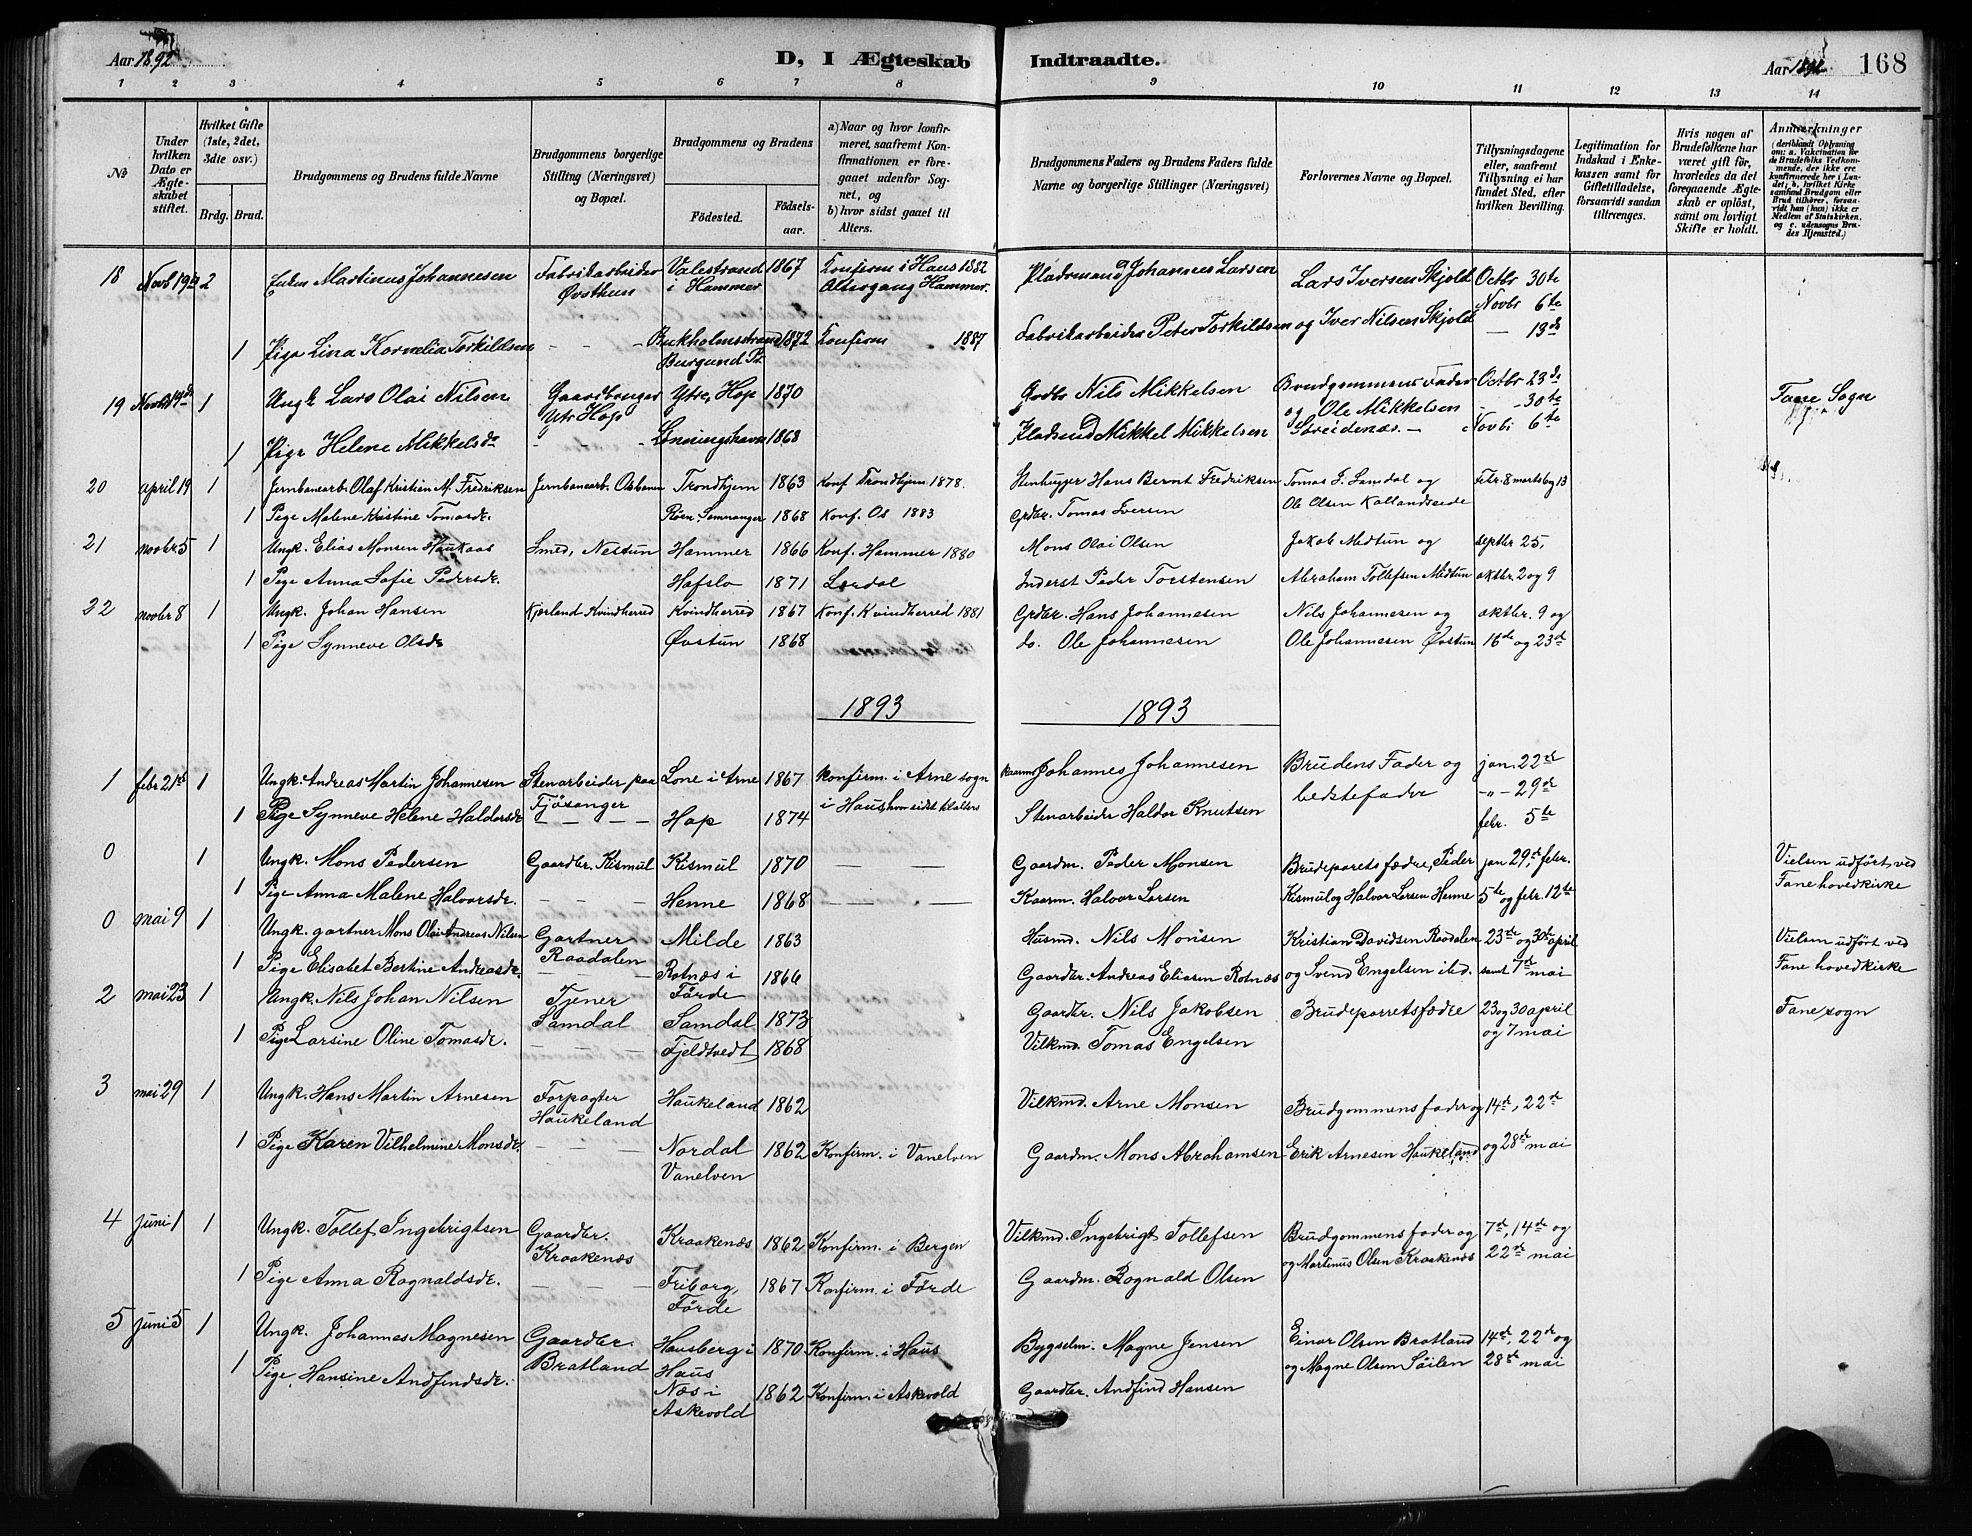 Aar 1892
D, I Ægteskab Indtraadte.
Aar 1892
168
1 2 3 4 5 6 7 8 9 10 11 12 13 14
No
Under hvilken Dato er Ægteskabet stiftet.
Hvilket Gifte (1ste, 2det, 3die osv.)
Brdg. Brud.
Brudgommens og Brudens fulde Navne
Brudgommens borgerlige Stilling (Næringsvei) og Bopæl.
Brudgommens og Brudens
Födested.
Födselsaar.
a) Naar og hvor konfirmeret, saafremt Konfirmationen er foregaaet udenfor Sognet, og
b) hvor sidst gaaet til Alters.
Brudgommens Faders og Brudens Faders fulde Navne og borgerlige Stillinger (Næringsvei)
Forlovernes Navne og Bopæl.
Tillysningsdagene eller, saafremt Tillysning ei har fundet Sted, efter hvilken Bevilling.
Legitimation for Indskud i Enkekassen samt for Giftetilladelse, forsaavidt saadan tiltrænges.
Hvis nogen af Brudefolkene har været gift för, hvorledes da det foregaaende Ægteskab er oplöst, samt om lovligt Skifte er holdt.
Anmerkninger (deriblandt Oplysning om: a. Vakcination for de Brudefolks Vedkommende, der ikke ere konfirmerede her i Landet; b. hvilket Kirkesamfund Brudgom eller Brud tilhörer, forsaavidt han (hun) ikke er Medlem af Statskirken, og c. udensogns Brudes Hjemsted.)
18 Novb 19de 2 Enkm Martinus Johannesen Fabrikarbeider Øvsthun Valestrand i Hammer 1867 Konfirm i Haus 1882 Altergang Hammer. Pladsmand Johannes Larsen Lars Iversen Skjold Octbr 30te Novbr 6te
1 Pige Lina Kornelia Torkildsen - - - 1872 Konfirm 1887 Fabrikarbeider Peter Torkildsen og Iver Nilsen Skjold — 13de
19 Novbr 19de 1 Ungk Lars Olai Nilsen Gaardbruger Ytr Hop Ytre Hop 1870 Gbr Nils Mikkelsen Brudgommens Fader og Ole Mikkelsen Octbr 23de - 30te Fane Sogn
1 Pige Helene Mikkelsdr - 1868 Pladsmd Mikkel Mikkelsen Novbr 6te
20 april 19 1 Jernbanearb. Olaf Kristian M. Fredriksen Jernbanearb. Trondhjem 1863 Konf Trondhjem 1878. Stenhugger Hans Bernt Fredriksen Tomas L. Samdal og Febr. 8 marts 6 og 13
1 Pige Malene Kristine Tomasdr. Røen, Samnanger 1868 Konf. Os 1883 Grdbr. Tomas Iversen Ole Olsen Kallandseide
21 novbr 5 1 Ungk. Elias Monsen Haukaas Smed, Nestun Hammer 1866 Konf. Hammer 1880 Mons Olai Olsen Jakob Midtun og septbr 25,
1 Pige Anna Sofie Pedersdr. Hafslo 1871 Lerdal Inderst Peder Torstensen Abraham Tollefsen Midtun oktbr. 2 og 9
22 novbr 8 1 Ungk. Johan Hansen Kjerland Kvindherred Kvindherred 1867 Konf. Kvindherred 1881 Grdbr. Hans Johannesen Nils Johannesen og oktbr. 9 og
1 Pige Synneve Olsdr Øvstun 1868 do. Ole Johannesen Ole Johannesen Øvstun 16de og 23de
1893 1893
1 febr 21de 1 Ungk. Andreas Martin Johannesen Stenarbeider paa Fjøsanger Lone i Arne 1867 konfirm. i Arne sogn i Haus, hvor sidst til alters Johannes Johannesen Brudens Fader og bedstefader jan. 22de -"- 29de
1 Pige Synneve Helene Haldorsdr — — — — Hop 1874 Stenarbeider Haldor Knutsen febr. 5te
0 1 Ungk. Mons Pedersen Gaardbr. Kismul Kismul 1870 — — Gaardm. Peder Monsen Brudeparets fædre, Peder jan 29de, febr. Vielsen udført ved Fane hovedkirke
1 Pige Anna Malene Halvorsdr. — — — Henne 1868 — — Kaarm. Halvor Larsen Kismul og Halvor Larsen Henne 5te og febr. 12te
0 mai 9 1 Ungk. gartner Mons Olai Andreas Nilsen Gartner Raadalen Milde 1863 Husmd. Nils Monsen Kristian Davidsen Raadalen 23de og 30te april Vielsen udført ved Fane hovedkirke
1 Pige Elisabet Bertine Andreasdr. — — — Rotnæs i Førde 1866 Gaardbr. Andreas Eliasen Rotnæs og Svend Engelsen ibd. samt 7de mai
2 mai 23 1 Ungk. Nils Johan Nilsen Tjener Samdal Samdal 1873 Gaardbr. Nils Jakobsen Brudeparretsfædre 23 og 30 april og 7 mai Fane sogn
1 Pige Larsine Oline Tomasdr. — — — Fjeldtvedt 1868 Vilkmd. Tomas Engelsen
3 mai 29 1 Ungk. Hans Martin Arnesen Forpagter Haukeland Haukeland 1862 Vilkmd. Arne Monsen Brudgommens fader og 14de, 22de
1 Pige Karen Vilhelmine Monsdr. — — — Nordal Vanelven 1862 Konfirm. i Vanelven Gaardm. Mons Abrahamsen Erik Arnesen Haukeland og 28de mai
4 juni 1 1 Ungk. Tollef Ingebrigtsen Gaardbr. Kraakenæs Kraakenæs 1862 Konfirm. i Bergen Vilkmd. Ingebrigt Tollefsen Brudgommens fader og 7de, 14de og
1 Pige Anna Ragnaldsdr. — — — Friborg, Førde 1867 Konfirm. i Førde Gaardm. Rognald Olsen og Martinus Olsen Kraakenæs 22de mai
5 juni 5 1 Ungk. Johannes Magnesen Gaardbr. Bratland Hausberg i Haus 1870 Konfirm. i Haus Bygselm. Magne Jensen Einar Olsen Bratland 14de, 22de og
1 Pige Hansine Andfindsdr. Næs i Askevold 1862 Konfirm. i Askevold Gaardbr. Andfind Hansen og Magne Olsen Søilen 28de mai